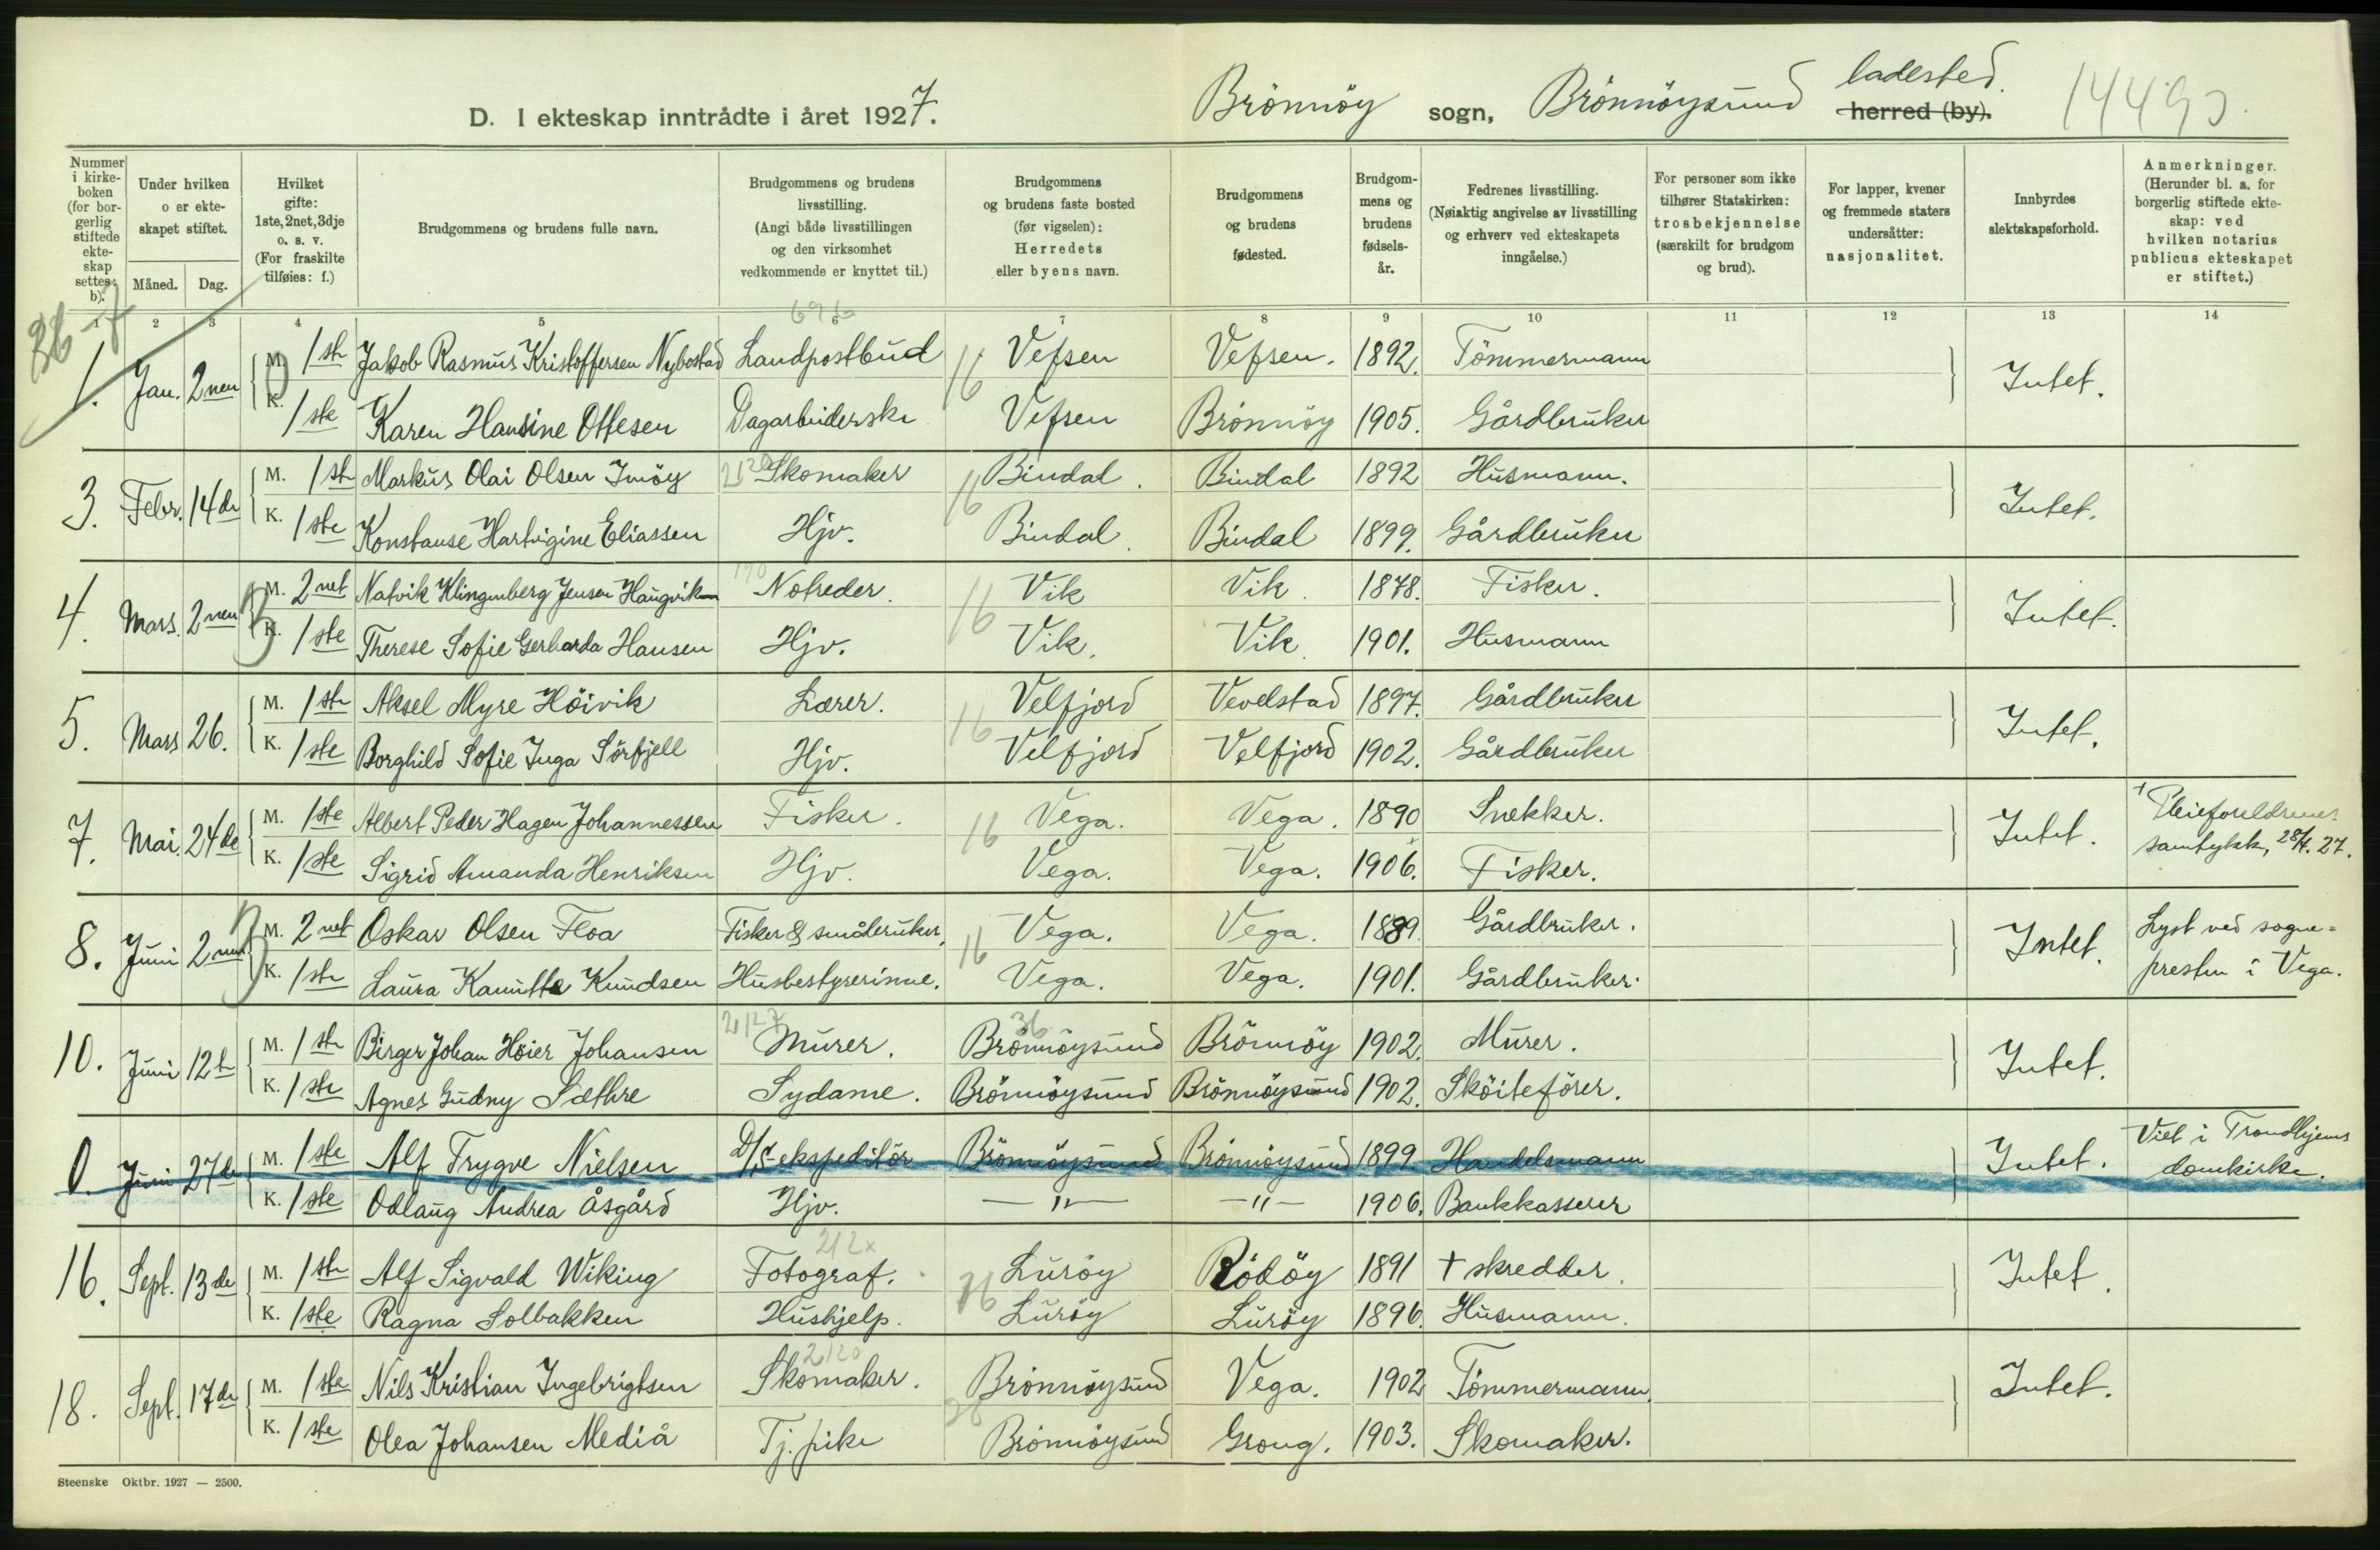 D. I ekteskap inntrådte i året 1927.
Brönnöy sogn, Brönnöysund ladested. herred (by).
Nummer i kirke-boken (for bor-gerlig stiftede ekte-skap settes: b).
Under hvilken o er ekte-skapet stiftet.
Måned. Dag.
Hvilket gifte: 1ste, 2net, 3dje o. s. v. (For fraskilte tilføies: f.)
Brudgommens og brudens fulle navn.
Brudgommens og brudens livsstilling. (Angi både livsstillingen og den virksomhet vedkommende er knyttet til.)
Brudgommens og brudens faste bosted (før vigselen): Herredets eller byens navn.
Brudgommens og brudens fødested.
Brudgom-mens og brudens fødsels-år.
Fedrenes livsstilling. (Nøiaktig angivelse av livsstilling og erhverv ved ekteskapets inngåelse.)
For personer som ikke tilhører Statskirken: trosbekjennelse (særskilt for brudgom og brud).
For lapper, kvener og fremmede staters undersåtter: nasjonalitet.
Innbyrdes slektskapsforhold.
Anmerkninger. (Herunder bl. a. for borgerlig stiftede ekte-skap: ved hvilken notarius publicus ekteskapet er stiftet.)
1 2 3 4 5 6 7 8 9 10 11 12 13 14
1. Jan. 2nen M. 1ste Jakob Rasmus Kristoffersen Nybostad Landpostbud 16 Vefsen Vefsen. 1892. Tömmermann Intet.
K. 1ste Karen Hansine Ottesen Dagarbeiderske Vefsen Brönnöy 1905. Gårdbruker
3. Febr. 14de M. 1ste Markus Olai Olsen Imöy Skomaker 16 Bindal. Bindal 1892 Husmann. Intet.
K. 1ste Konstanse Hartvigine Eliassen Hjv. Bindal. Bindal 1899. Gårdbruker
4. Mars. 2nen M. 2net Natvik Klingenberg Jensen Haugvik Notreder. 16 Vik Vik. 1878. Fisker. Intet.
K. 1ste Therese Sofie Gerharda Hansen Hjv. Vik. Vik 1901. Husmann
5. Mars 26. M. 1ste Aksel Myre Höivik Lærer. 16 Velfjord Vevelstad 1897. Gårdbruker Intet.
K. 1ste Borghild Sofie Inga Sörfjell Hjv. Velfjord Velfjord 1902. Gårdbruker
7. Mai. 24de M. 1ste Albert Peder Hagen Johannessen Fisker. 16 Vega. Vega. 1890 Snekker. Intet. Pleieforeldrenes samtykke, 28/4. 27.
K. 1ste Sigrid Amanda Henriksen Hjv. Vega. Vega. 1906. Fisker.
8. Juni 2nen M. 2net Oskar Olsen Floa Fisker & småbruker, 16 Vega. Vega. 1889. Gårdbruker. Intet. Lyst ved sogne=
K. 1ste Laura Kanutte Knudsen Husbestyrerinne. Vega. Vega. 1901. Gårdbruker. presten i Vega.
10. Juni 12te M. 1ste Birger Johan Höier Johansen 2127 Murer. 36 Brönnöysund Brönnöy 1902. Murer. Intet.
K. 1ste Agnes Gudny Sæthre Sydame. Brönnöysund Brönnöysund 1902. Sköiteförer.
0. Juni 27de M. 1ste Alf Trygve Nielsen D/S-ekspeditör Brönnöysund Brönnöysund 1899. Handelsmann Intet. Viet i Trondhjems domkirke.
K. 1ste Odlaug Andrea Åsgård Hjv. —"— —"— 1906. Bankkasserer
16. Sept. 13de M. 1ste Alf Sigvald Wiking Fotograf. Luröy Rödöy 1891 + skredder. Intet.
K. 1ste Ragna Solbakken Hushjelp. Luröy Luröy 1896. Husmann.
18. Sept. 17de M. 1ste Nils Kristian Ingebrigtsen 2120 Skomaker. Brönnöysund Vega. 1902 Tömmermann. Intet.
K. 1ste Olea Johansen Mediå Tj. pike Brönnöysund Grong. 1903. Skomaker.
Steenske Oktbr. 1927 — 2500.